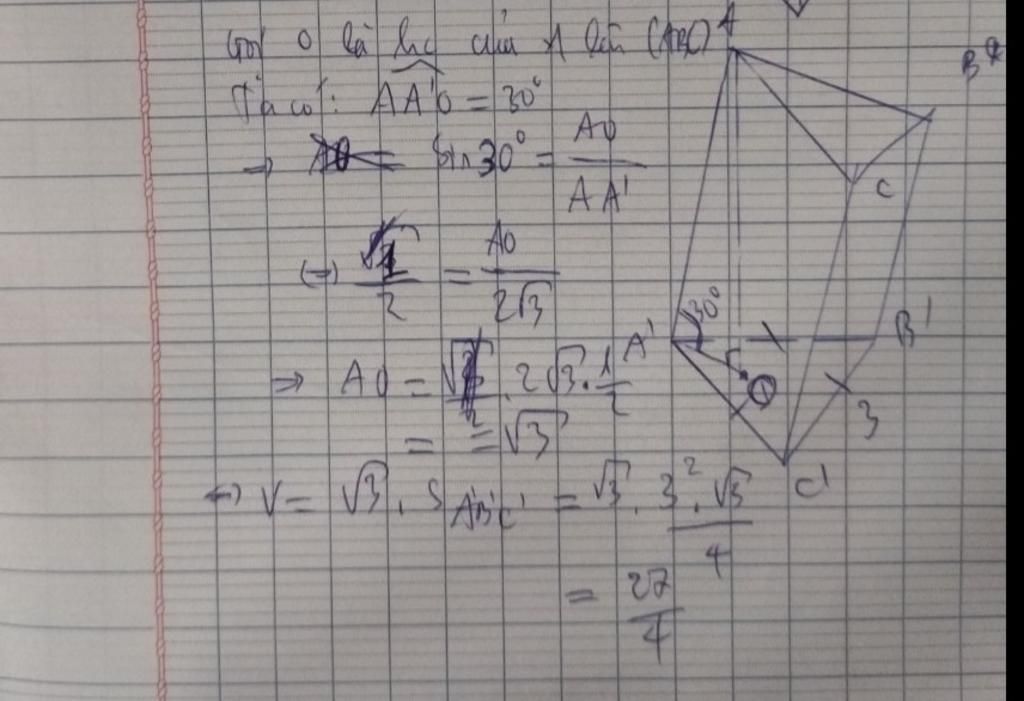 Gọi O là hc của A lên (A'B'C')
Ta có: AA'O = 30°
=> sin 30° = AO / AA'
(=) 1/2 = AO / 2√3
=> AO = 2√3 . 1/2
= = √3
<=> V = √3 . S A'B'C' = √3 . 3² . √3 / 4
= 27/4
A
B
C
30°
A'
B'
O
3
C'